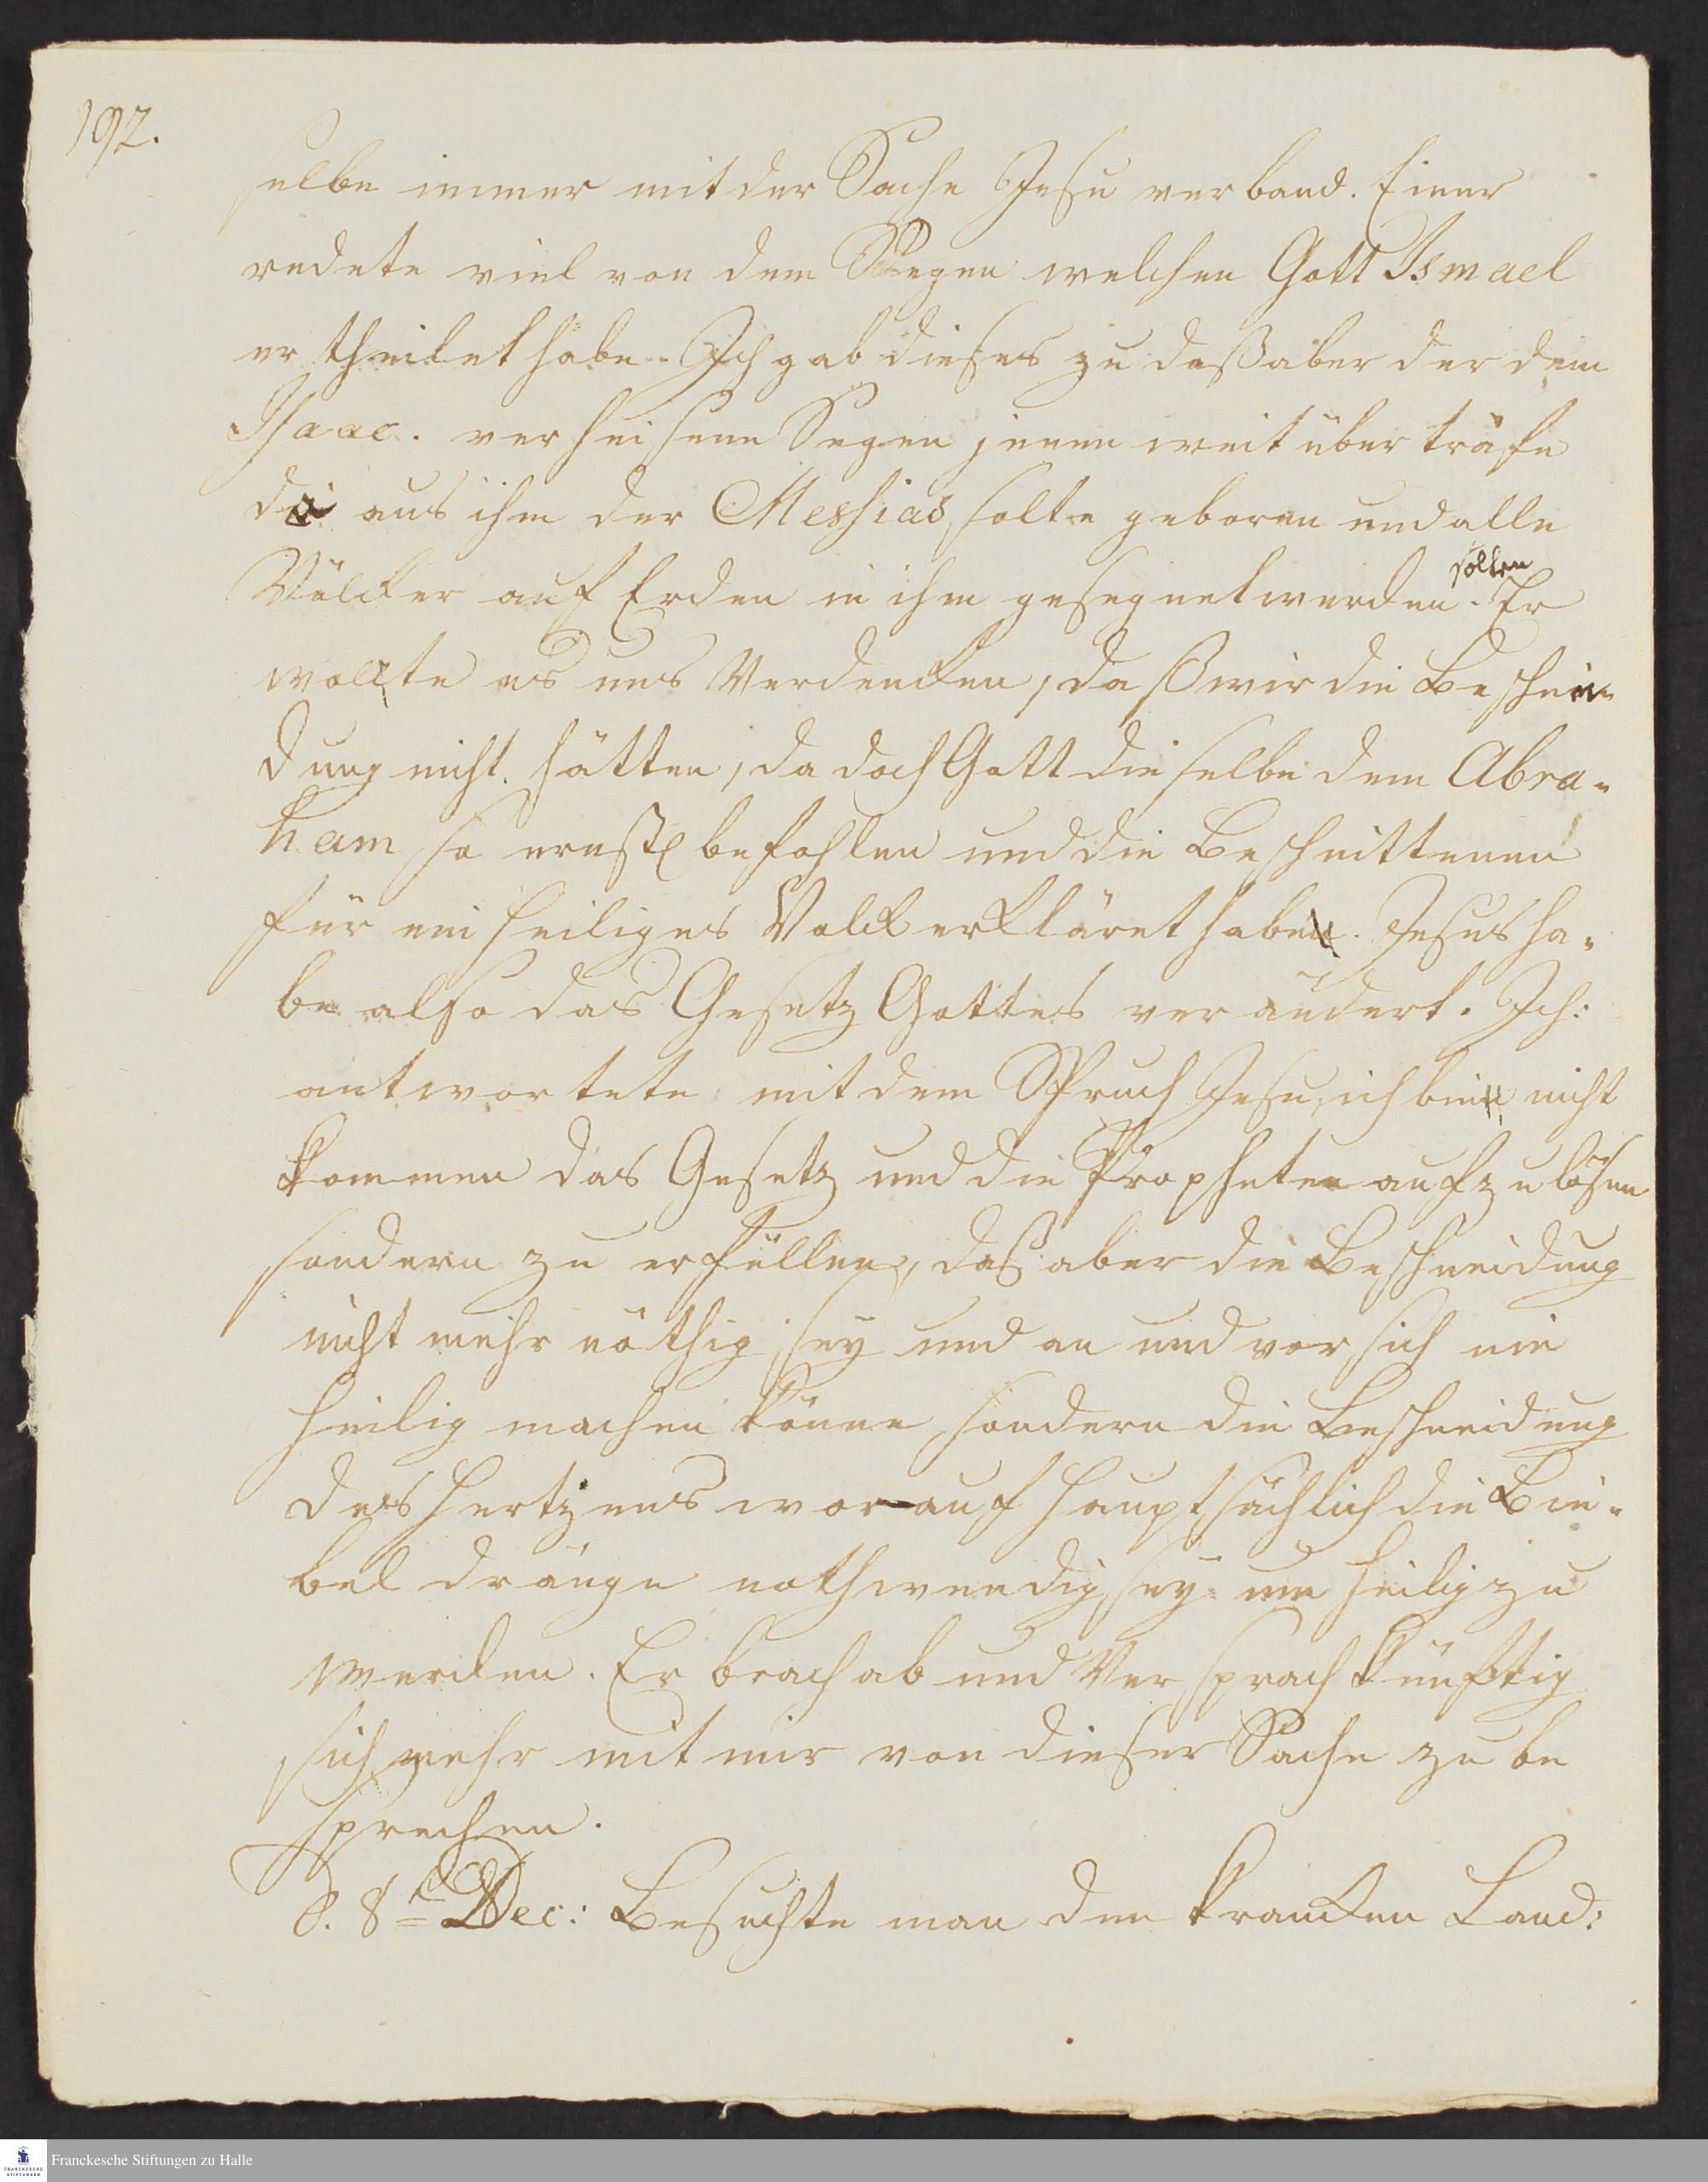 192.
selbe immer mit der Sache Jesu verband. Einer
redete viel von dem Seegen welchen Gott Ismael
ertheilet habe. Ich gab dieses zu daß aber der dem
Isaac. verheisene Segen jenen weit überträfe
da aus ihm der Messias solte geboren und alle
Völcker auf Erden in ihm gesegnet werden solten. Er
wollte es uns Verdencken, daß wir die Beschnei-
dung nicht hätten, da doch Gott dieselbe dem Abra-
ham so ernstl befohlen und die Beschnittenen
für ein heiliges Volck erkläret habe. Jesus ha-
be also das Gesetz Gottes verändert. Ich:
antwortete mit dem Spruch Jesu, ich bin nicht
kommen das Gesetz und die Propheten aufzulösen
sondern zu erfüllen, daß aber die Beschneidung
nicht mehr nöthig sey und an und vor sich nie
heilig machen könne sondern die Beschneidung
des Hertzens worauf hauptsächlich die Bie-
bel dränge nothwendig sey um heilig zu
werden. Er brach ab und Versprach künftig
sich mehr mit mir von dieser Sache zu be
sprechen.
d. 8<sup>t</sup> Dec: Besuchte man den krancken Land:
Franckesche Stiftungen zu Halle
FRANCKESCHE
STIFTUNGEN